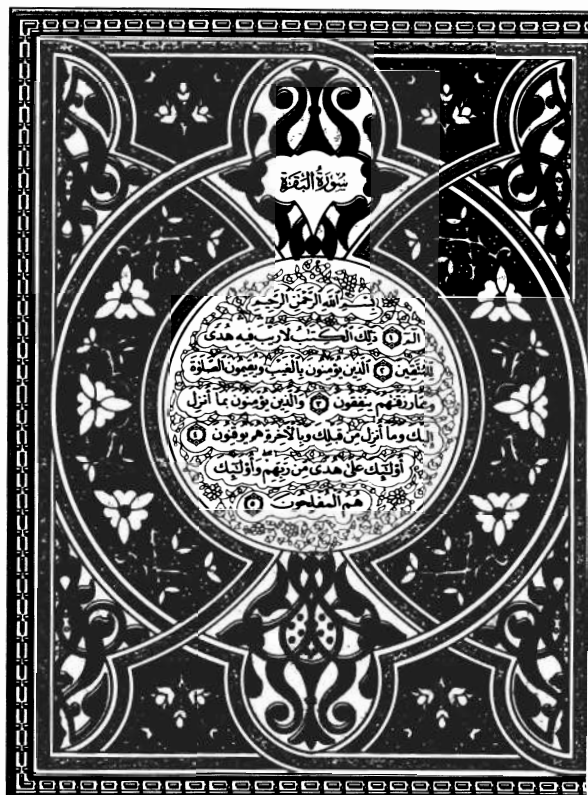 سُورَةُ الْبَقَرَة
بسم الله الرحمن الرحيم
الم ١ ذلك الكتب لا ريب فيه هدى
للمتقين ٢ الذين يؤمنون بالغيب ويقيمون الصلوة
ومما رزقنهم ينفقون ٣ والذين يؤمنون بما أنزل
إليك وما أنزل من قبلك وبالآخرة هم يوقنون ٤
أولئك على هدى من ربهم وأولئك
هم المفلحون ٥